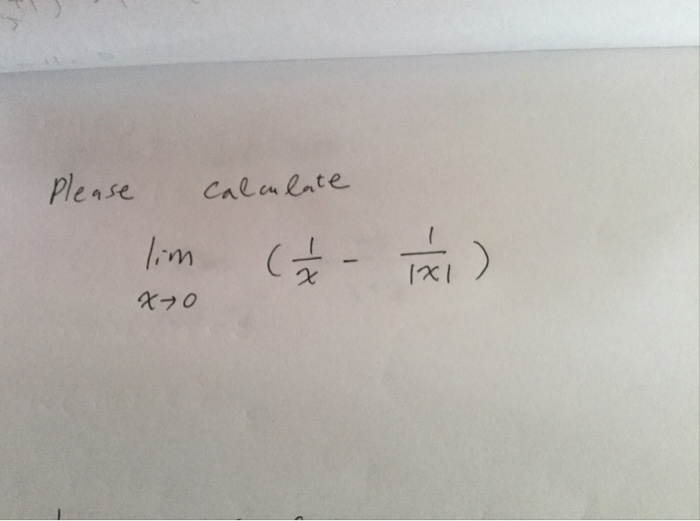 Please calculate
lim (1/x - 1/|x|)
x→0